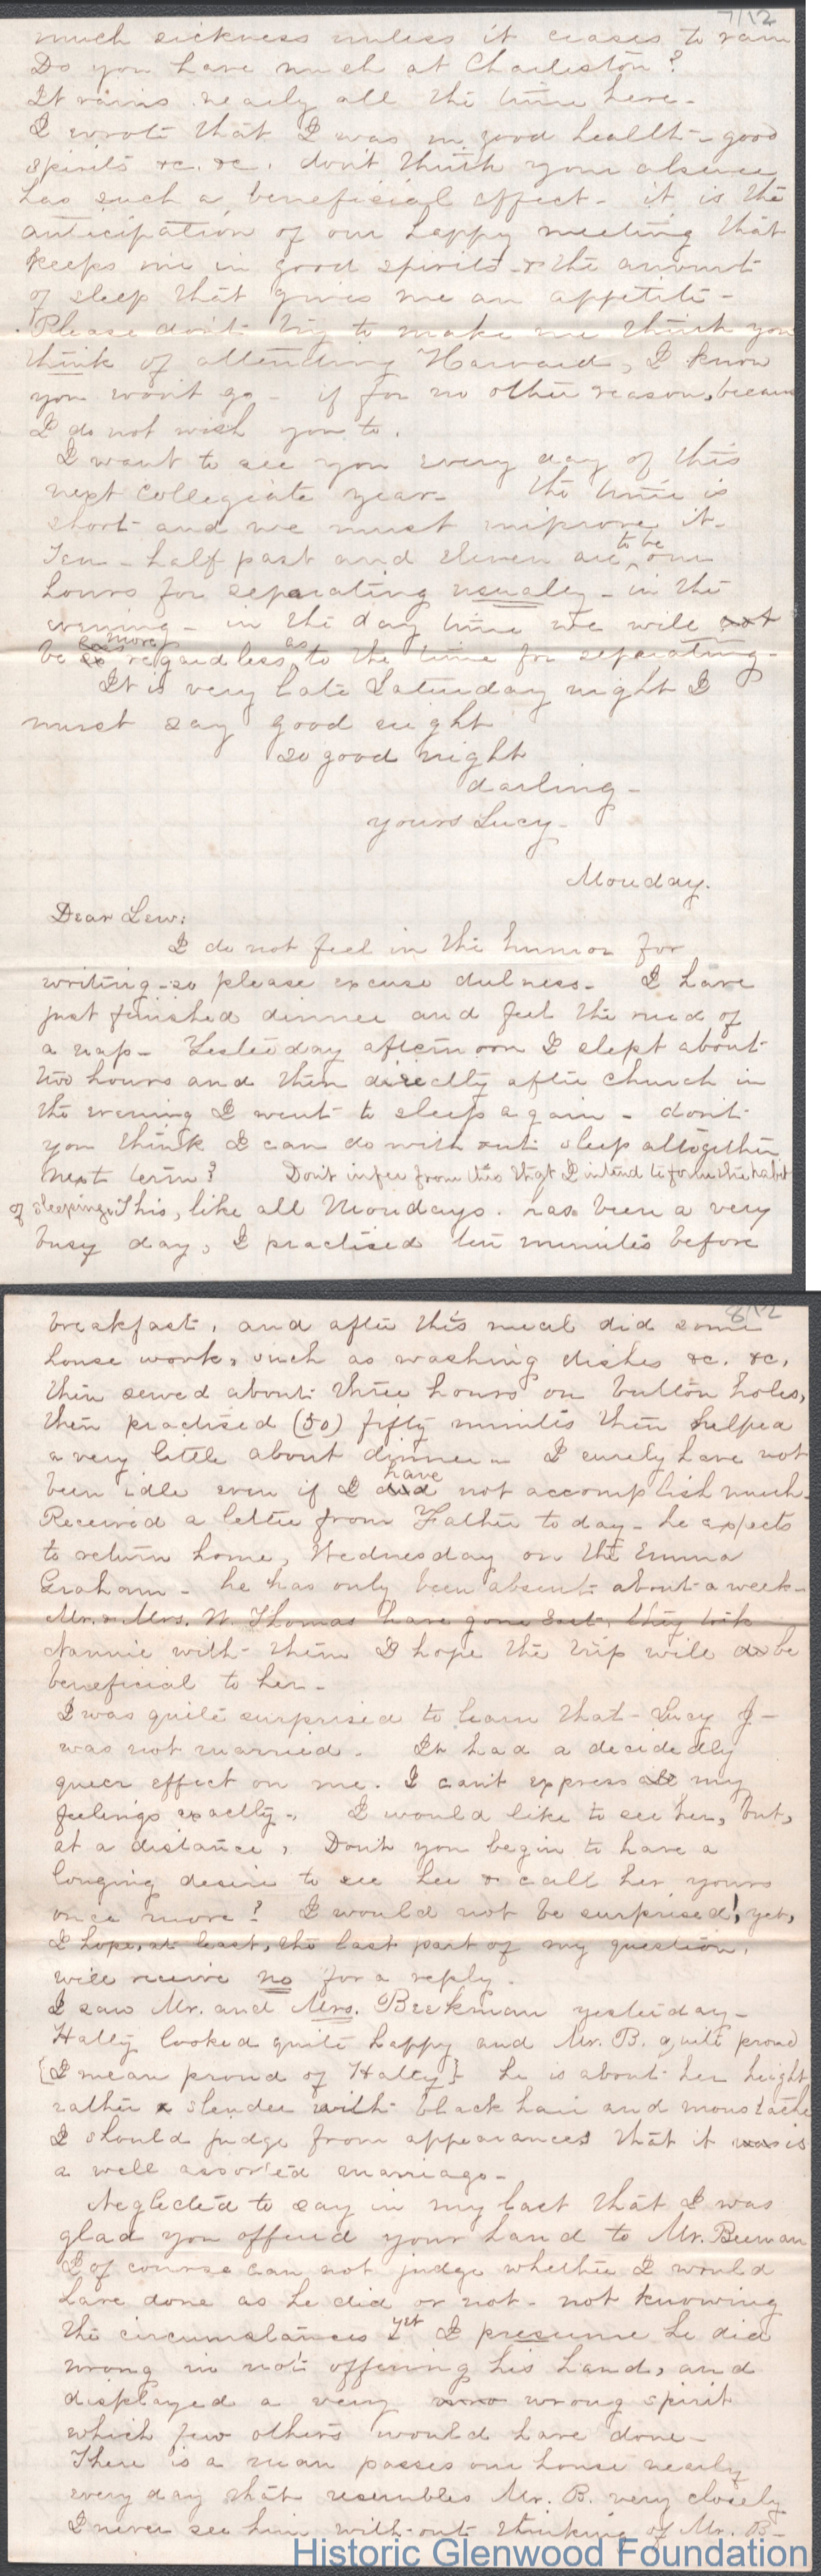 7/12
much sickness unless it ceases to rain
Do you have much at Charleston?
It rains nearly all the time here-
I wrote that I was in good health - good
spirits &c. &c. don't think your absence
has such a beneficial effect - it is the
anticipation of our happy meeting that
keeps me in good spirits & the amount
of sleep that gives me an appetite -
Please don't try to make me think you
think of attending Harvard, I know
you won't go - if for no other reason, because
I do not wish you to.
I want to see you every day of this
next collegiate year. The time is
short and we must improve it.
Ten - half past and eleven are to be our
hours for separating usually - in the
evening - in the day time we will not
be so more regardless as to the time for separating-
It is very late Saturday night I
must say good night
so good night
darling -
yours Lucy -
Monday.
Dear Lew:
I do not feel in the humor for
writing - so please excuse dulness. I have
just finished dinner and feel the need of
a nap - Yesterday afternoon I slept about
two hours and then directly after church in
the evening I went to sleep again - don't
you think I can do without sleep altogether
next term? Don't infer from this that I intend to form the habit
of sleeping. This, like all Mondays. has been a very
busy day, I practised ten minutes before
8/12
breakfast, and after this meal did some
house work, such as washing dishes &c. &c.
then sewed about three hours on button holes,
then practised (50) fifty minutes then helped
a very little about dinner - I surely have not
been idle even if I did have not accomplish much.
Received a letter from Father to day - he expects
to return home, Wednesday on the Emma
Graham - he has only been absent about a week -
Mr. & Mrs. W. Thomas have gone East, they took
Nannie with them I hope the trip will do be
beneficial to her -
I was quite surprised to learn that Lucy J-
was not married. It had a decidedly
queer effect on me. I can't express my
feelings exactly - I would like to see her, but,
at a distance, Don't you begin to have a
longing desire to see her & call her yours
once more? I would not be surprised! yet,
I hope, at least, the last part of my question,
will receive no for a reply.
I saw Mr. and Mrs. Beekman yesterday -
Hatty looked quite happy and Mr. B. quite proud
[I mean proud of Hatty] he is about her height
rather slender with black hair and moustache
I should judge from appearances that it was is
a well assorted marriage -
Neglected to say in my last that I was
glad you offered your hand to Mr. Beeman
I of course can not judge whether I would
have done as he did or not - not knowing
the circumstances yet I presume he did
wrong in not offering his hand, and
displayed a very wrong spirit
which few others would have done -
There is a man passes our house nearly
every day that resembles Mr. B. very closely
I never see him with-out thinking of Mr. B -
Historic Glenwood Foundation